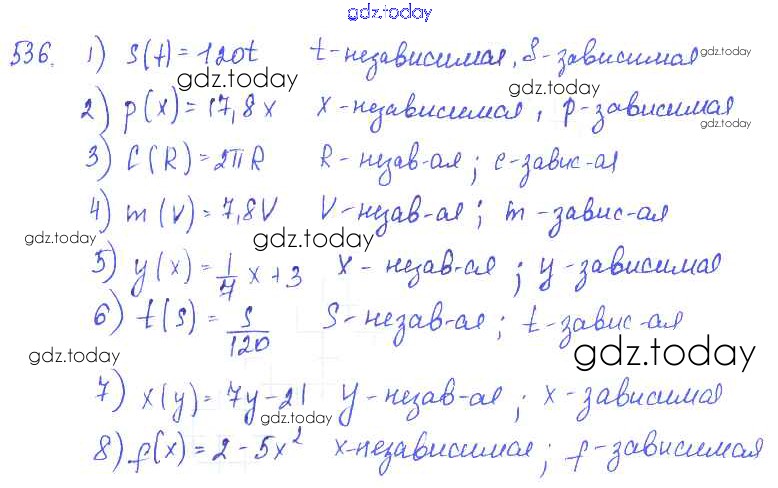 gdz.today
536. 1) S(t) = 120t t-независимая, S-зависимая gdz.today
gdz.today
2) p(x) = 17,8x x-независимая, p-зависимая
gdz.today
3) C(R) = 2πR R-незав-ая; c-завис-ая
4) m(V) = 7,8V V-незав-ая; m-завис-ая
gdz.today gdz.today
5) y(x) = 1/7 x + 3 x-незав-ая; y-зависимая
6) t(s) = s/120 S-незав-ая; t-завис-ая
gdz.today gdz.today
7) x(y) = 7y - 21 y-незав-ая; x-зависимая
gdz.today
8) f(x) = 2 - 5x² x-независимая; f-зависимая